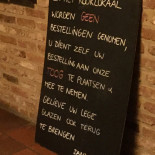 WORDEN GEEN
BESTELLINGEN GENOMEN,
U DIENT ZELF UW
BESTELLING AAN ONZE
TOOG TE PLAATSEN &
MEE TE NEMEN.
GELIEVE UW LEGE
GLAZEN OOK TERUG
TE BRENGEN